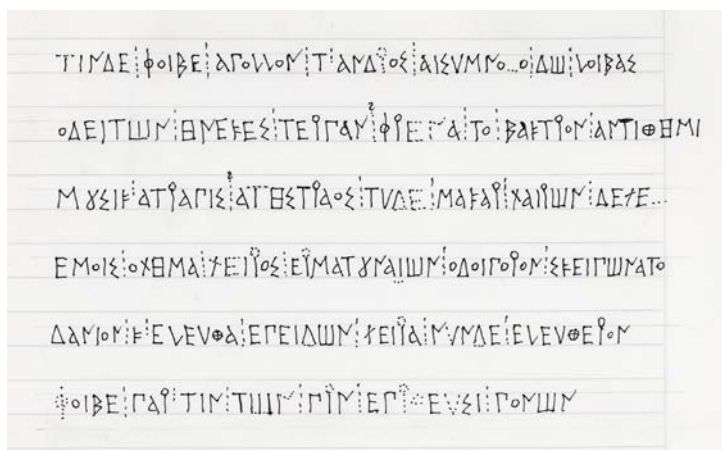 ΤΙΝΔΕ⁝ΦΟΙΒΕ⁝ΑΠΟΛΛΟΝ⁝Τ⁝ΑΝΔΡΟΣ⁝ΑΙΣΥΜΝΟ...Ο⁝ΔΩ⁝ΛΟΙΒΑΣ
ΟΔΕΙΤΩΝ⁝ΗΝΕΚΕΣ⁝ΤΕΡΠΑΝ⁝ΦΡΕΠΑ⁝ΤΟ⁝ΒΑΚΤΡΟΝ⁝ΑΝΤΙΘΗΜΙ
ΜȢΣΙΚ⁝ΑΤΡΑΠΙΣ⁝ΑΓΗΣΤΡΑΟΣ⁝ΤΥΔΕ⁝ΜΑΚΑΡ⁝ΧΑΙΡΩΝ⁝ΔΕΧΕ...
ΕΜΟΙΣ⁝ΟΧΗΜΑ⁝ΧΕΙΡΟΣ⁝ΕΡΜΑΤȢΝΑΙΩΝ⁝ΟΔΟΙΠΟΡΟΝ⁝ΣΚΕΙΠΩΝΑΤΟ
ΔΑΝΙΟΝ⁝Κ⁝ΕΛΕΥΘΑ⁝ΕΠΕΙΔΩΝ⁝ΧΕΙΡΑ⁝ΝΥΝΔΕ⁝ΕΛΕΥΘΕΡΟΝ
ΦΟΙΒΕ⁝ΠΑΡ⁝ΤΙΝ⁝ΤΩΝ⁝ΠΡΙΝ⁝ΠΟΝΩΝ